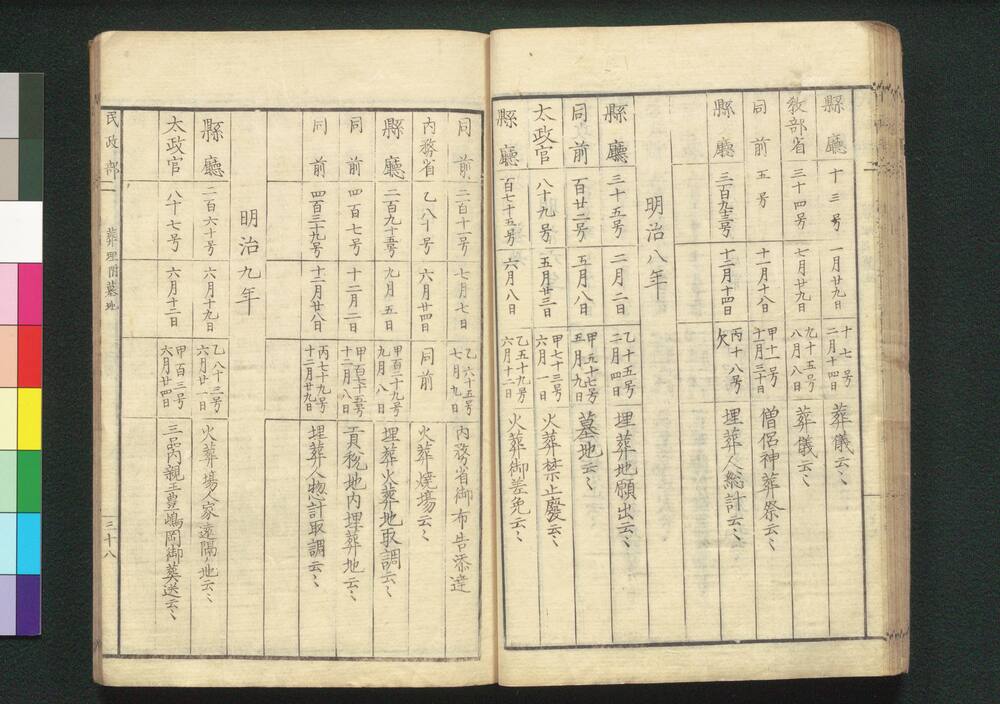 縣廳 十三号 一月廿九日 十七号 二月十四日 葬儀云〻
教部省 三十四号 七月廿九日 九十五号 八月八日 葬儀云〻
同前 五号 十一月十八日 甲十一号 十一月三十日 僧侶神葬祭云〻
縣廳 三百九十三号 十二月十四日 丙十八号 欠 埋葬人総計云〻
明治八年
縣廳 三十五号 二月二日 乙十五号 二月四日 埋葬地願出云〻
同前 百廿二号 五月八日 甲五十七号 五月九日 墓地云〻
太政官 八十九号 五月廿三日 甲七十三号 六月一日 火葬禁止廢云〻
縣廳 百七十五号 六月八日 乙五十九号 六月十二日 火葬御差免云〻
同前 二百十一号 七月七日 乙六十五号 七月九日 内務省御布告添達
内務省 乙八十号 六月廿四日 同前 火葬焼場云〻
縣廳 二百九十五号 九月五日 甲百二十九号 九月八日 埋葬火葬地取調云〻
同前 四百七号 十二月二日 甲百七十五号 十二月八日 貢税地内埋葬地云〻
同前 四百三十九号 十二月廿八日 丙七十九号 十二月廿九日 埋葬人惣計取調云〻
明治九年
縣廳 二百六十号 六月十九日 乙八十三号 六月廿一日 火葬場人家遠隔ノ地云〻
太政官 八十七号 六月十二日 甲百三号 六月廿四日 三品内親王豊嶋岡御葬送云〻
民政部 葬埋附墓地 三十八